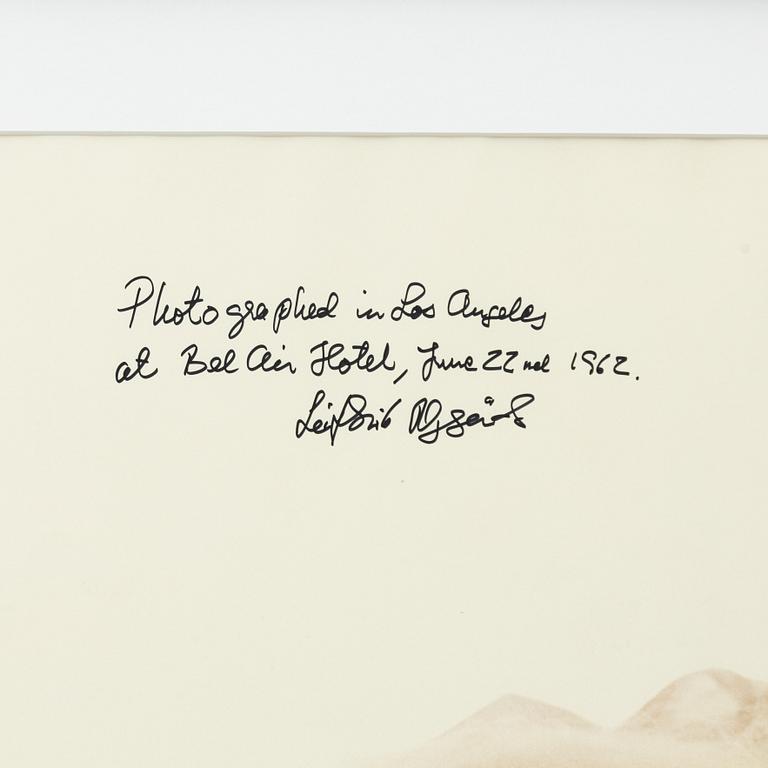 Photographed in Los Angeles
at Bel Air Hotel, June 22nd 1962.
Leif-Erik Nygårds